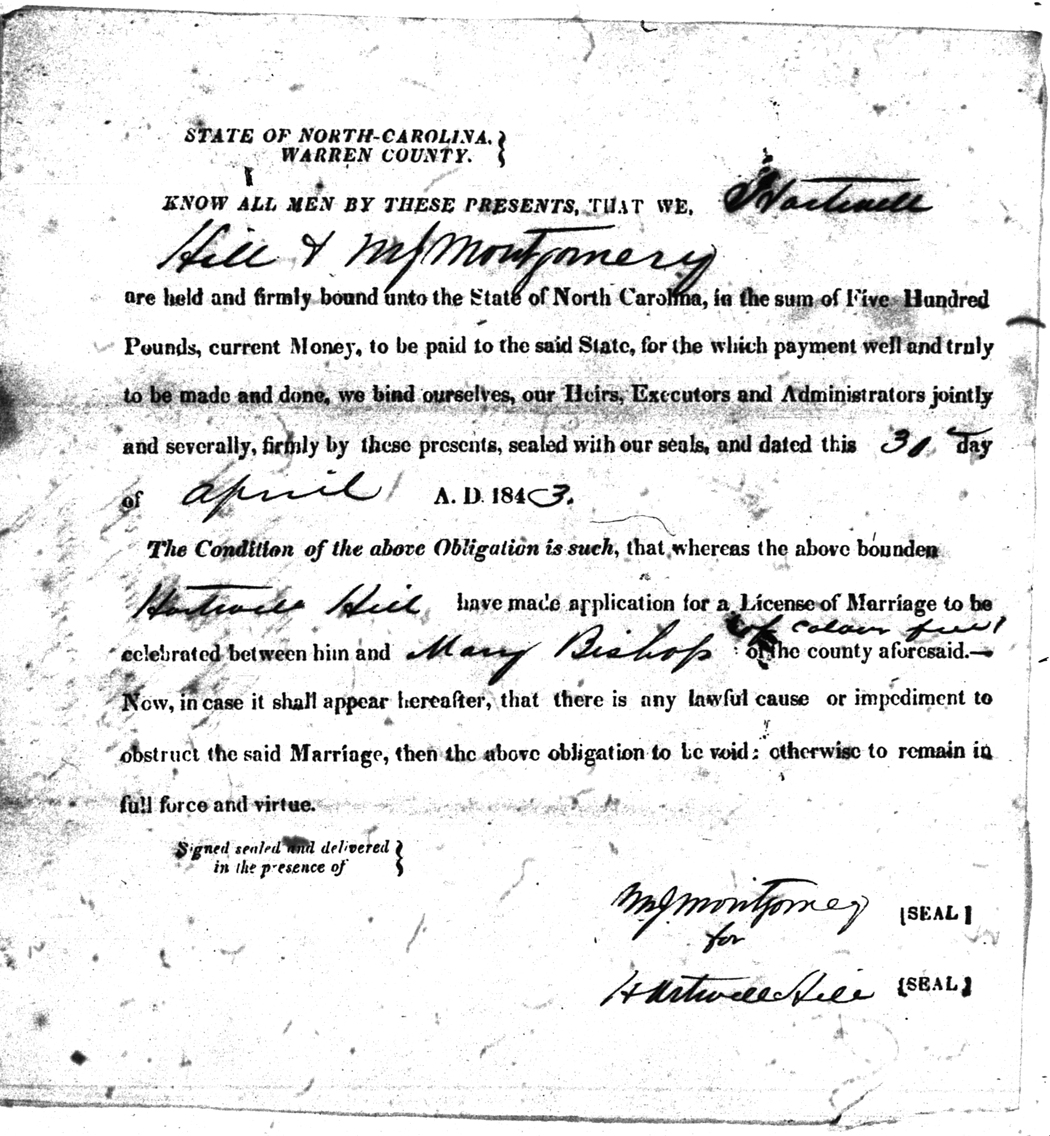 STATE OF NORTH-CAROLINA.
WARREN COUNTY.
KNOW ALL MEN BY THESE PRESENTS, THAT WE, Hartwell
Hill & M J Montgomery
are held and firmly bound unto the State of North Carolina, in the sum of Five Hundred
Pounds, current Money, to be paid to the said State, for the which payment well and truly
to be made and done, we bind ourselves, our Heirs, Executors and Administrators jointly
and severally, firmly by these presents, sealed with our seals, and dated this day
of April A. D. 1843.
The Condition of the above Obligation is such, that whereas the above bounden
Hartwell Hill have made application for a License of Marriage to be
of colour free
celebrated between him and Mary Bishop of the county aforesaid.—
Now, in case it shall appear hereafter, that there is any lawful cause or impediment to
obstruct the said Marriage, then the above obligation to be void: otherwise to remain in
full force and virtue.
Signed sealed and delivered
in the presence of
M J Montgomery [SEAL]
for
Hartwell Hill [SEAL]